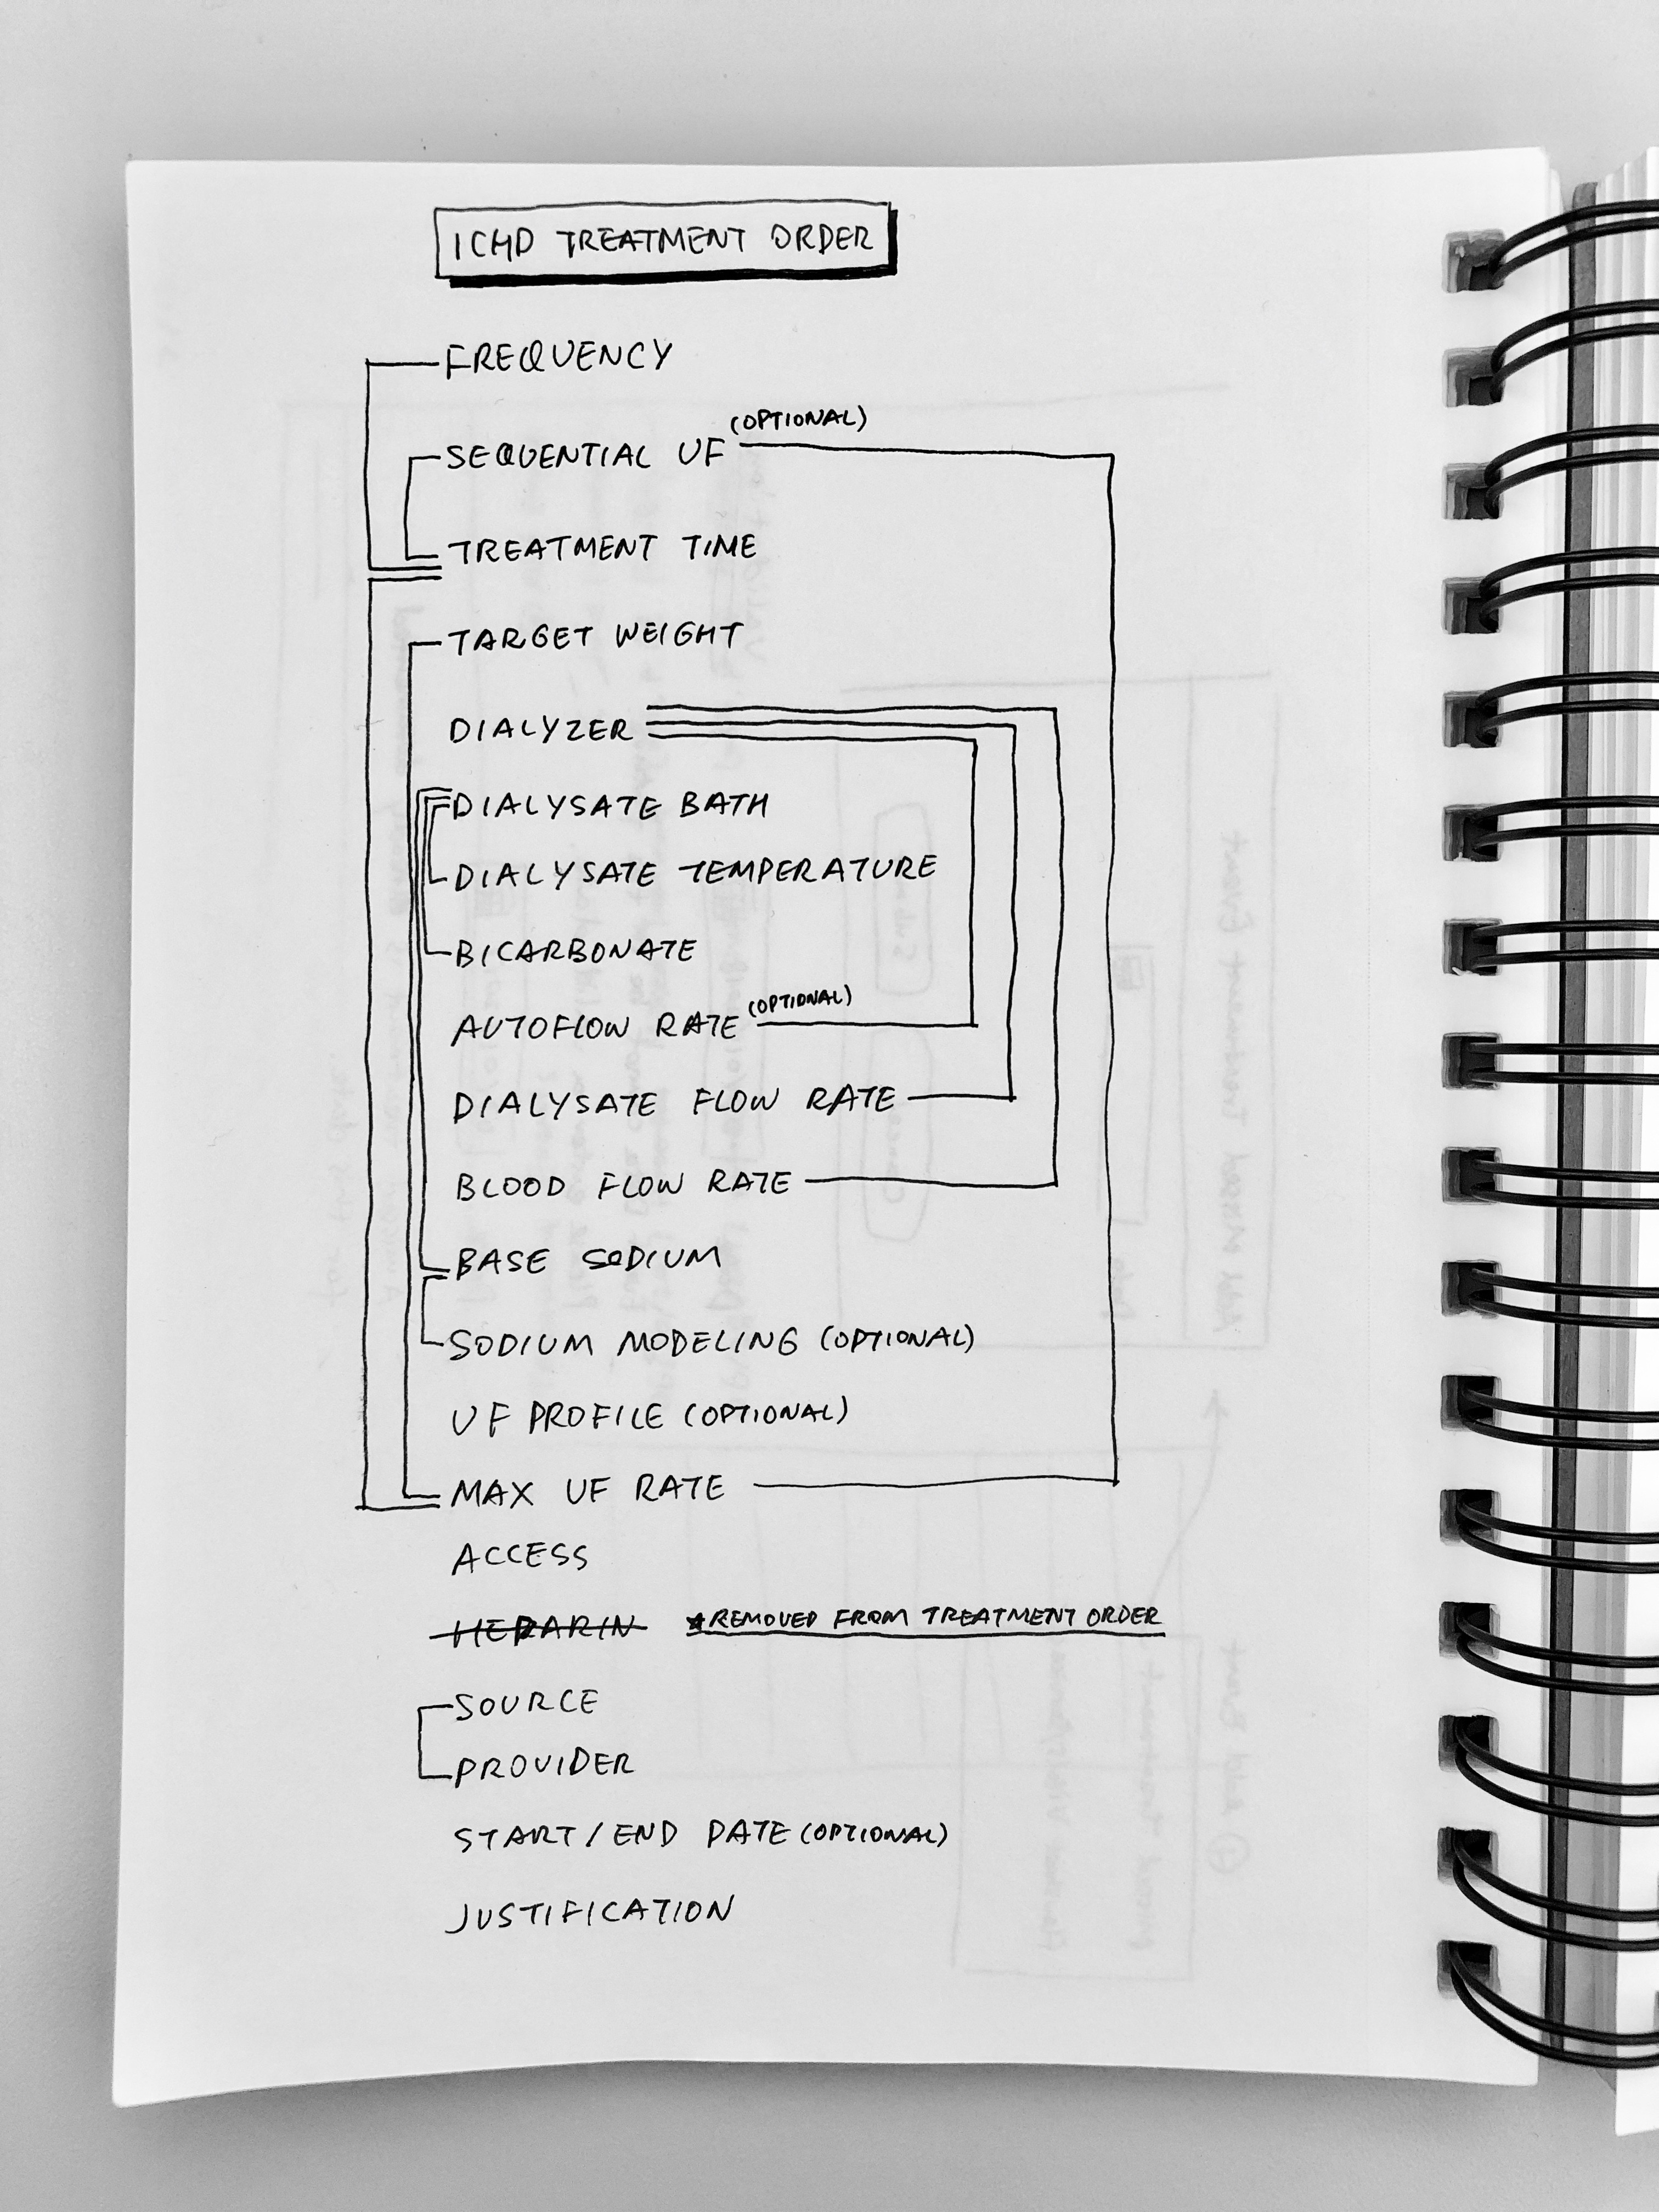 ICHD TREATMENT ORDER
FREQUENCY
SEQUENTIAL UF (OPTIONAL)
TREATMENT TIME
TARGET WEIGHT
DIALYZER
DIALYSATE BATH
DIALYSATE TEMPERATURE
BICARBONATE
AUTOFLOW RATE (OPTIONAL)
DIALYSATE FLOW RATE
BLOOD FLOW RATE
BASE SODIUM
SODIUM MODELING (OPTIONAL)
UF PROFILE (OPTIONAL)
MAX UF RATE
ACCESS
HEPARIN *REMOVED FROM TREATMENT ORDER
SOURCE
PROVIDER
START/END DATE (OPTIONAL)
JUSTIFICATION